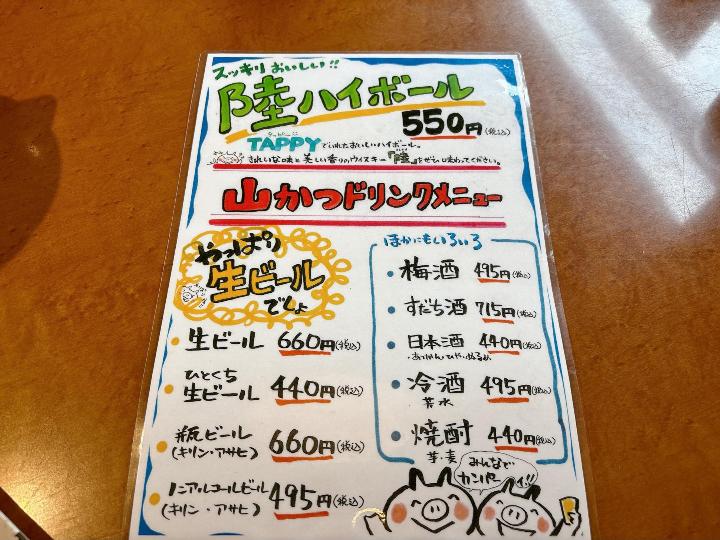 スッキリおいしい!!
陸ハイボール
550円(税込)
TAPPYでいれたおいしいハイボール。
きれいな味と美しい香りのウイスキー『陸』をぜひ味わってください。
山かつドリンクメニュー
やっぱり
生ビール
でしょ
・生ビール 660円(税込)
・ひとくち
生ビール 440円(税込)
・瓶ビール 660円(税込)
(キリン・アサヒ)
・ノンアルコールビール 495円(税込)
(キリン・アサヒ)
ほかにもいろいろ
・梅酒 495円(税込)
・すだち酒 715円(税込)
・日本酒 440円(税込)
・あつかん・ひや・ぬるかん
・冷酒 495円(税込)
・焼酎 440円(税込)
芋・麦
みんなで
カンパーイ!!